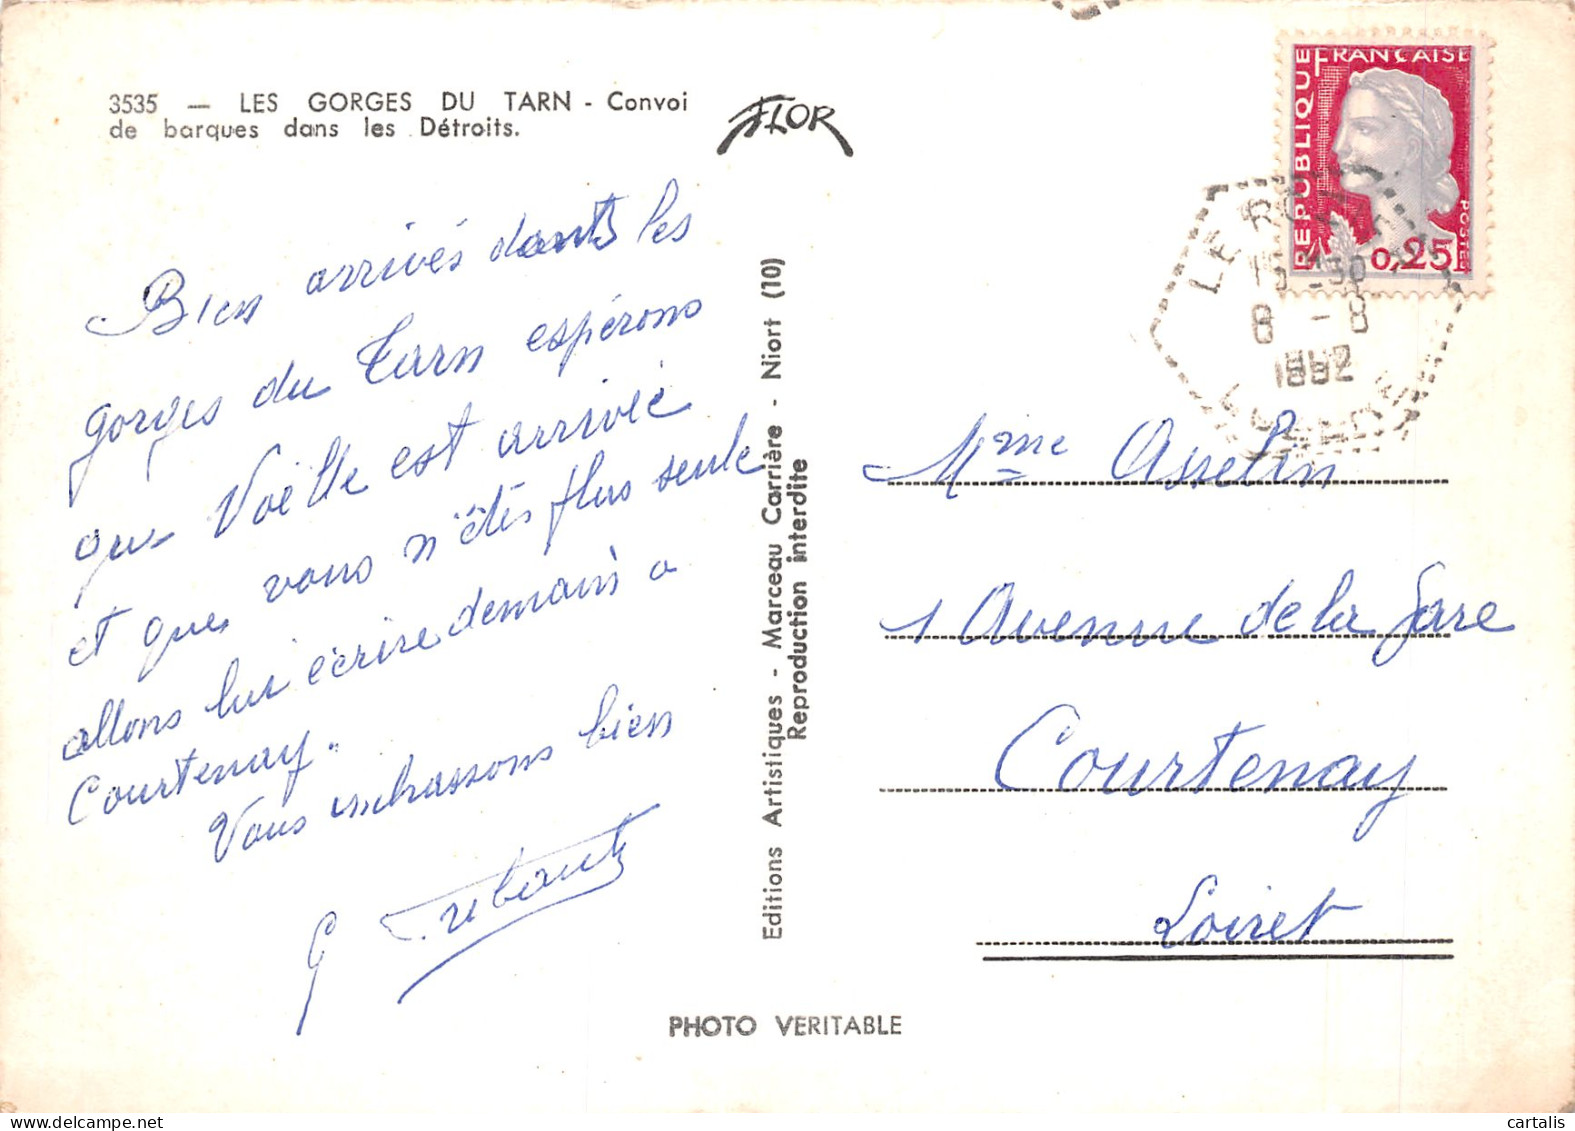 3535 — LES GORGES DU TARN - Convoi
de barques dans les Détroits.
FLOR
RÉPUBLIQUE FRANÇAISE
POSTES
0,25F
8 - 8
Bien arrivés dants les
gorges du Tarn espérons
que Voëlle est arrivée
et que vous n'êtes plus seule
allons lui écrire demain à
Courtenay.
Vous embrassons bien
G
Editions Artistiques - Marceau Carrière - Niort (10)
Reproduction interdite
Mme Asselin
1 Avenue de la Gare
Courtenay
Loiret
PHOTO VERITABLE
cartalis